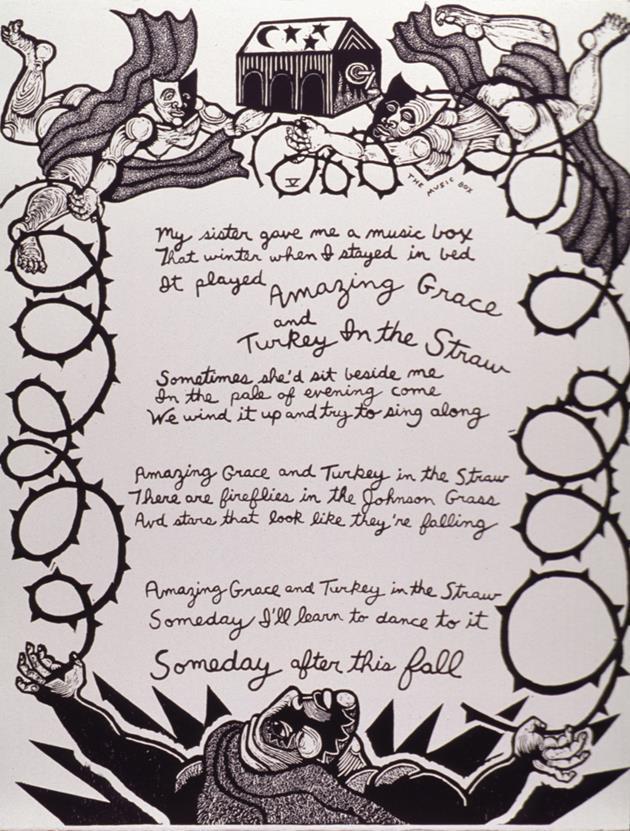 V
THE MUSIC BOX
My sister gave me a music box
That winter when I stayed in bed
It played Amazing Grace
and
Turkey In the Straw
Sometimes she'd sit beside me
In the pale of evening come
We wind it up and try to sing along
Amazing Grace and Turkey in the Straw
There are fireflies in the Johnson Grass
And stars that look like they're falling
Amazing Grace and Turkey in the Straw
Someday I'll learn to dance to it
Someday after this fall